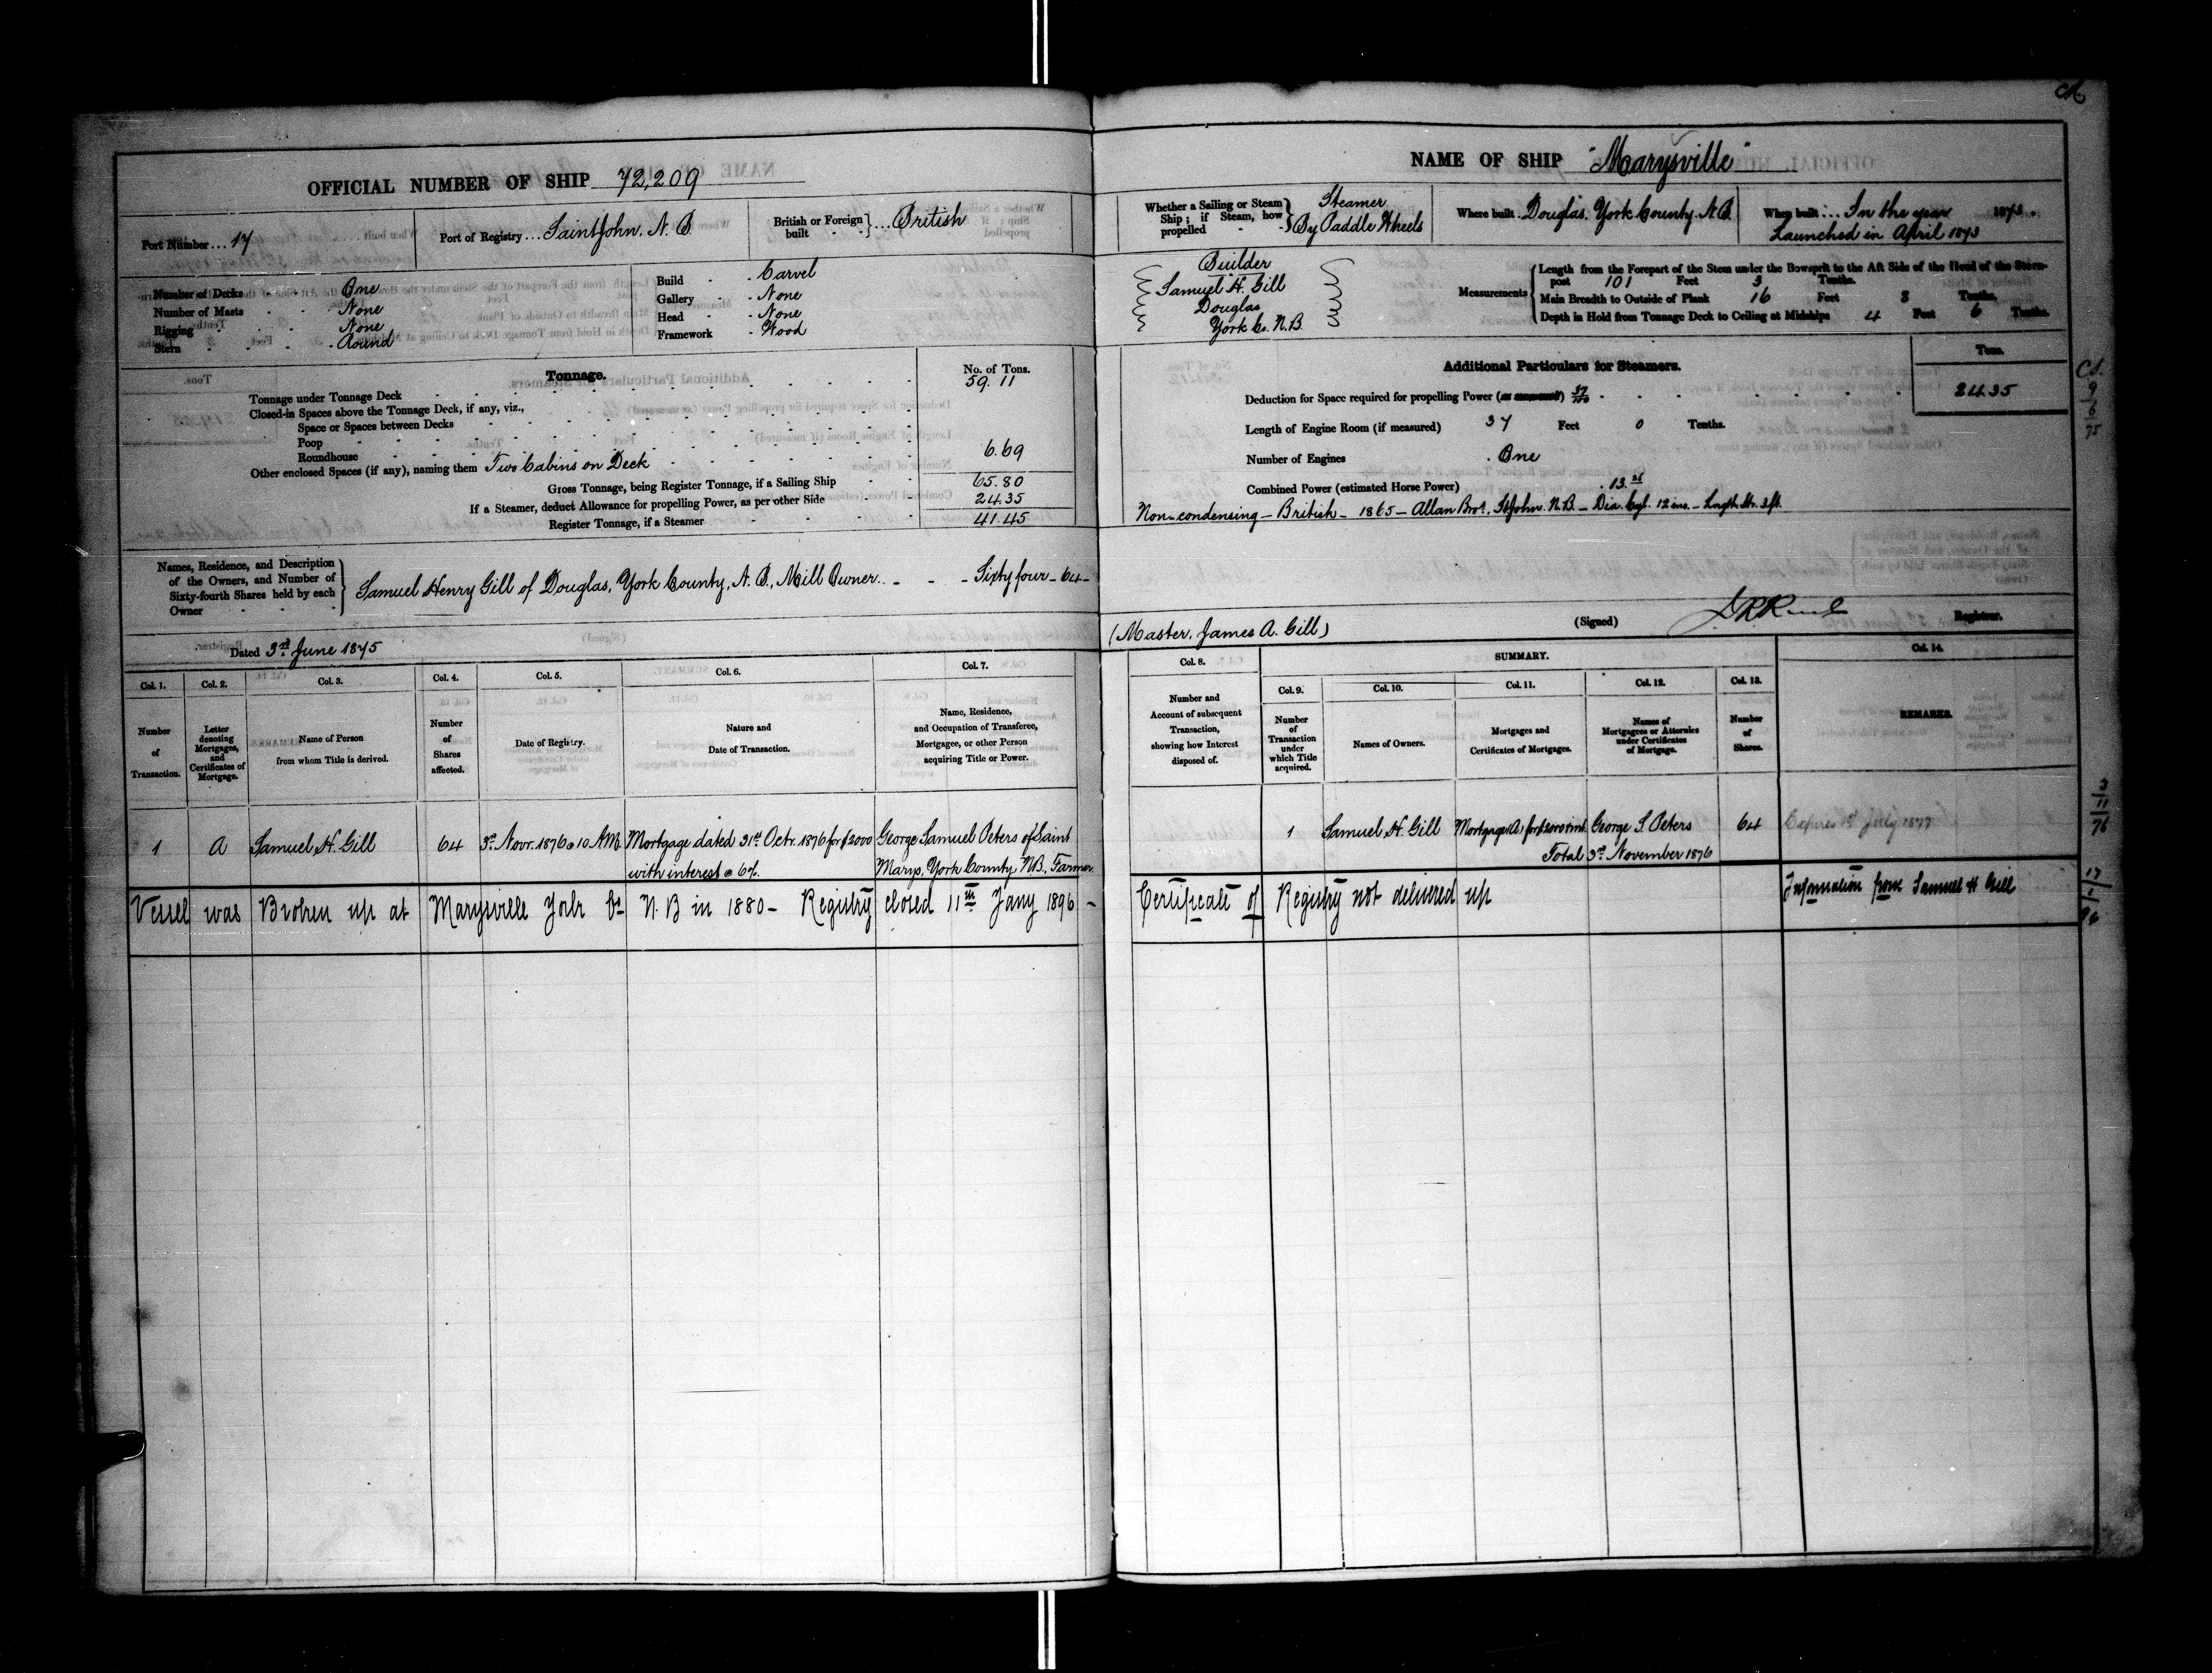 OFFICIAL NUMBER OF SHIP 72,209
Port Number ... 17
Port of Registry ... Saint John, N. B.
British or Foreign built } ... British
Number of Decks One
Number of Masts None
Rigging None
Stern Round
Build Carvel
Gallery None
Head None
Framework Wood
Tonnage.
No. of Tons.
Tonnage under Tonnage Deck 59.11
Closed-in Spaces above the Tonnage Deck, if any, viz.,
Space or Spaces between Decks
Poop
Roundhouse
Other enclosed Spaces (if any), naming them Two Cabins on Deck 6.69
Gross Tonnage, being Register Tonnage, if a Sailing Ship 65.80
If a Steamer, deduct Allowance for propelling Power, as per other Side 24.35
Register Tonnage, if a Steamer 41.45
Names, Residence, and Description
of the Owners, and Number of
Sixty-fourth Shares held by each
Owner
Samuel Henry Gill of Douglas, York County, N. B., Mill Owner. - - - Sixty four - 64 -
Dated 3rd June 1875
Col. 1. Number of Transaction.
Col. 2. Letter denoting Mortgages, and Certificates of Mortgage.
Col. 3. Name of Person from whom Title is derived.
Col. 4. Number of Shares affected.
Col. 5. Date of Registry.
Col. 6. Nature and Date of Transaction.
Col. 7. Name, Residence, and Occupation of Transferee, Mortgagee, or other Person acquiring Title or Power.
1 A Samuel H. Gill 64 3rd Novr. 1876 @ 10 AM. Mortgage dated 31st Octr. 1876 for $2000 George Samuel Peters of Saint
with interest @ 6%. Marys, York County, NB., Farmer.
Vessel was Broken up at Marysville York Co N. B in 1880 - Registry closed 11th Jany 1896 -
NAME OF SHIP "Marysville"
Whether a Sailing or Steam Ship; if Steam, how propelled } Steamer By Paddle Wheels
Where built Douglas, York County. N.B.
When built ... In the year 1873.
Launched in April 1873
Builder
Samuel H. Gill
Douglas
York Co. N.B.
Measurements
Length from the Forepart of the Stem under the Bowsprit to the Aft Side of the Head of the Stern-
post 101 Feet 3 Tenths.
Main Breadth to Outside of Plank 16 Feet 8 Tenths,
Depth in Hold from Tonnage Deck to Ceiling at Midships 4 Feet 6 Tenths.
Additional Particulars for Steamers.
Tons.
Deduction for Space required for propelling Power (as measured) 37/100 24.35
Length of Engine Room (if measured) 37 Feet 0 Tenths.
Number of Engines One
Combined Power (estimated Horse Power) 13
Non-condensing - British - 1865 - Allan Bros., St John. N.B. - Dia. Cyl. 12 ins. - Length Str. 3 ft.
(Master, James A. Gill)
(Signed) Registrar.
Col. 8. Number and Account of subsequent Transaction, showing how Interest disposed of.
SUMMARY.
Col. 9. Number of Transaction under which Title acquired.
Col. 10. Names of Owners.
Col. 11. Mortgages and Certificates of Mortgages.
Col. 12. Names of Mortgagees or Attornies under Certificates of Mortgage.
Col. 13. Number of Shares.
Col. 14. REMARKS.
1 Samuel H. Gill Mortgage (A) for $2000 & int. George S. Peters 64 Expires 1st July 1877
Total 3rd November 1876
Certificate of Registry not delivered up Information from Samuel H Gill
Cd.
9
6
75
3
11
76
17
1
96